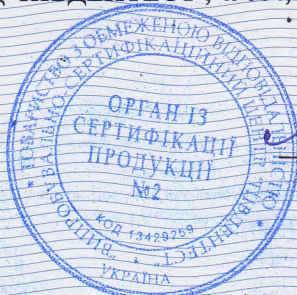 ТОВАРИСТВО З ОБМЕЖЕНОЮ ВІДПОВІДАЛЬНІСТЮ
ВИПРОБУВАЛЬНО-СЕРТИФІКАЦІЙНИЙ ЦЕНТР
ОРГАН ІЗ
СЕРТИФІКАЦІЇ
ПРОДУКЦІЇ
№2
КОД 13429259
УКРАЇНА